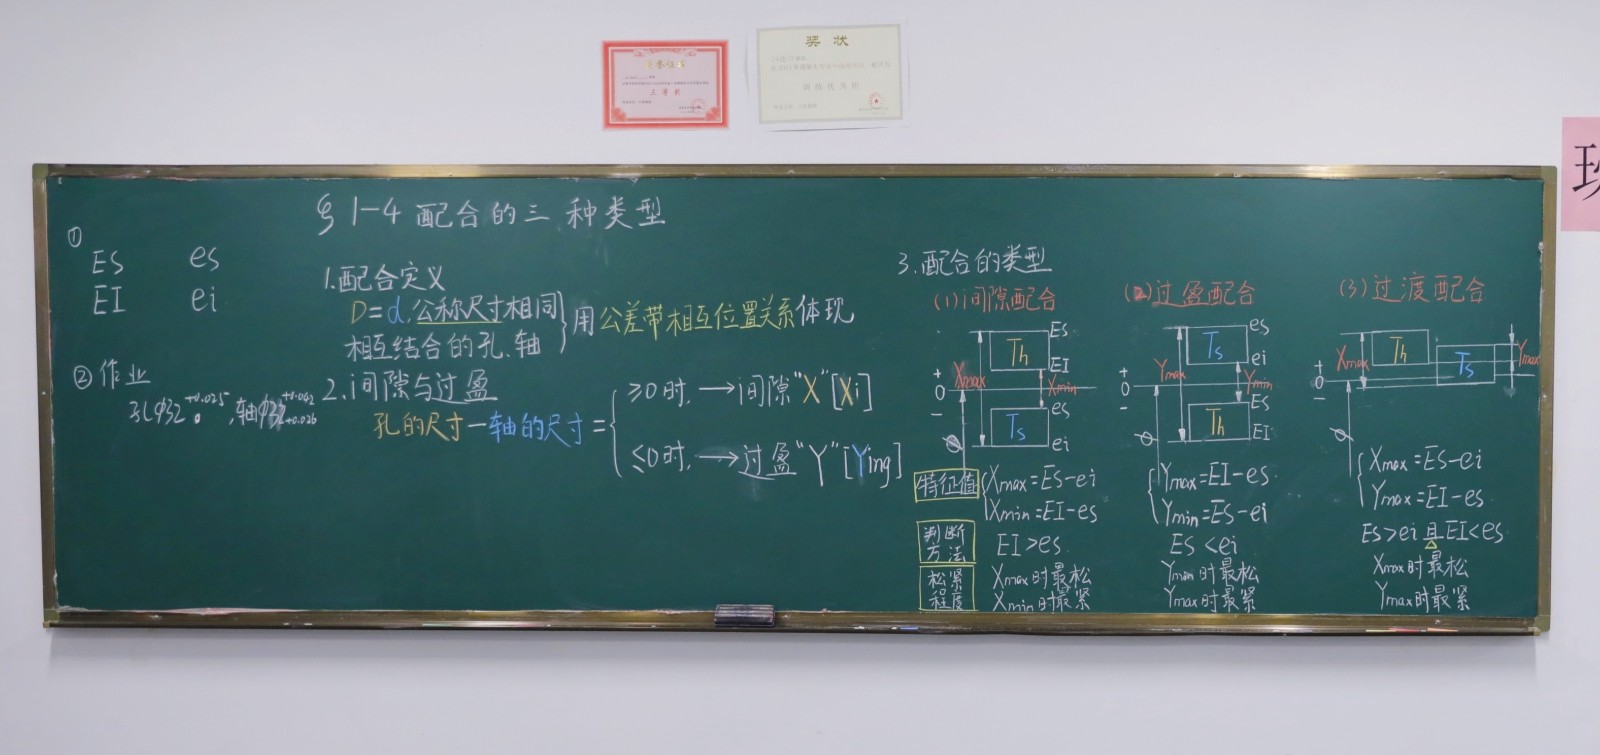 荣誉证书
三等奖
奖状
训练优秀班
§1-4 配合的三种类型
①
ES es
EI ei
②作业
孔φ32 +0.025 0 ,轴φ32 +0.042 +0.026
1.配合定义
D=d,公称尺寸相同
相互结合的孔、轴
用公差带相互位置关系体现
2.i间隙与过盈
孔的尺寸－轴的尺寸=
≥0时,→i间隙"X"[Xi]
≤0时,→过盈"Y"[Ying]
3.配合的类型
(1)i间隙配合
Th
ES
EI
Xmax
Xmin
+
0
−
Ts
es
ei
φ
特征值
Xmax=ES-ei
Xmin=EI-es
判断方法
EI>es
松紧程度
Xmax时最松
Xmin时最紧
(2)过盈配合
Ts
es
ei
Ymax
Ymin
+
0
−
Th
ES
EI
φ
Ymax=EI-es
Ymin=ES-ei
ES<ei
Ymin时最松
Ymax时最紧
(3)过渡配合
Xmax
Th
Ts
Ymax
+
0
−
φ
Xmax=ES-ei
Ymax=EI-es
ES>ei且EI<es
Xmax时最松
Ymax时最紧